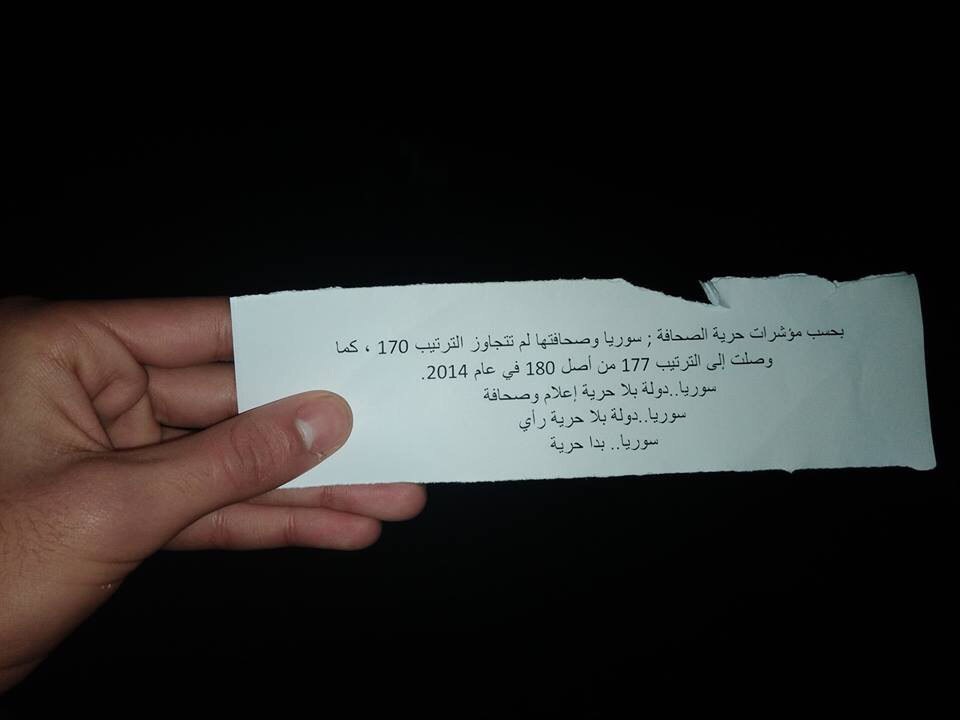 بحسب مؤشرات حرية الصحافة ; سوريا وصحافتها لم تتجاوز الترتيب 170 ، كما
وصلت إلى الترتيب 177 من أصل 180 في عام 2014.
سوريا..دولة بلا حرية إعلام وصحافة
سوريا..دولة بلا حرية رأي
سوريا.. بدا حرية